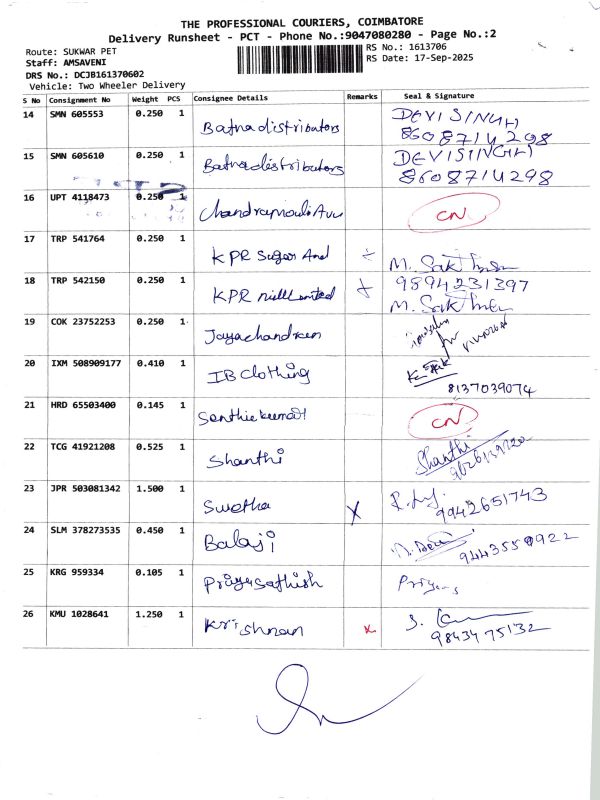 THE PROFESSIONAL COURIERS, COIMBATORE
Delivery Runsheet - PCT - Phone No.:9047080280 - Page No.:2
Route: SUKWAR PET
RS No.: 1613706
Staff: AMSAVENI
RS Date: 17-Sep-2025
DRS No.: DCJB161370602
Vehicle: Two Wheeler Delivery
S No Consignment No Weight PCS Consignee Details Remarks Seal & Signature
14 SMN 605553 0.250 1 Batna distributors DEVISINGH
8608714298
15 SMN 605610 0.250 1 Batna distributors DEVISINGH
8608714298
16 UPT 4118473 0.250 1 Chandramouli CN
17 TRP 541764 0.250 1 KPR Sugar And M.
18 TRP 542150 0.250 1 KPR mill Limited 9894231397
M.
19 COK 23752253 0.250 1 Jayachandren
20 IXM 508909177 0.410 1 IB Clothing
8137039074
21 HRD 65503400 0.145 1 CN
22 TCG 41921208 0.525 1 Shanthi Shanthi
23 JPR 503081342 1.500 1 Swetha X
9942651743
24 SLM 378273535 0.450 1 Balaji
25 KRG 959334 0.105 1 Priya sathish
26 KMU 1028641 1.250 1 Krishnan x S.
9843475132